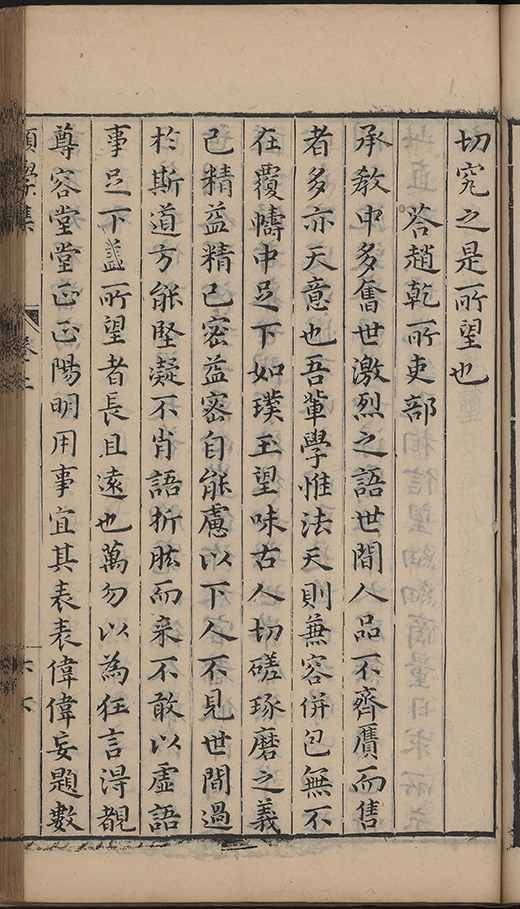 切究之是所望也
答趙乾所吏部
承教中多奮世激烈之語世間人品不齊贋而售
者多亦天意也吾輩學惟法天則蕪容併包無不
在覆幬中足下如璞玉望味古人切磋琢磨之義
已精益精已密益密自能慮以下人不見世間過
於斯道方能堅凝不肖語折肱而來不敢以虛語
事足下蓋所望者長且遠也萬勿以為狂言淂覩
尊容堂堂正正陽明用事宜其表表偉偉妄題數
願學集
卷二
六六